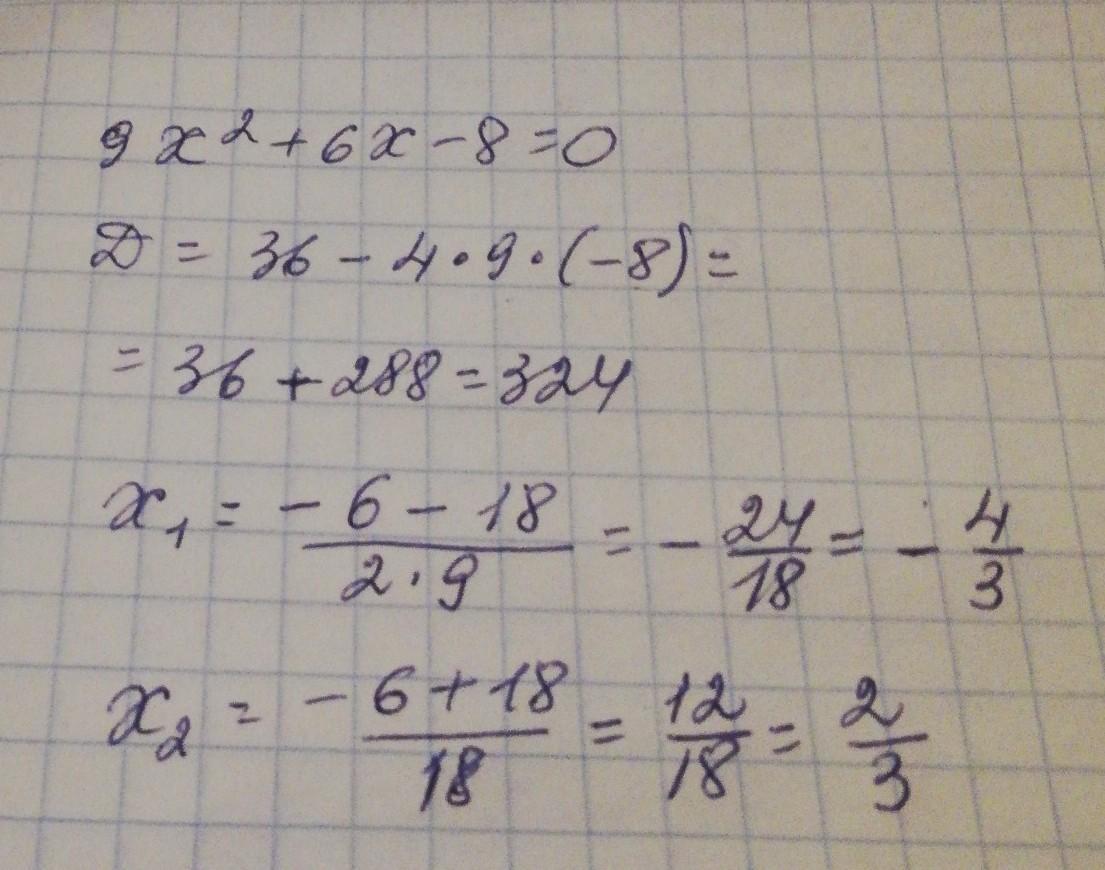 9x² + 6x - 8 = 0
D = 36 - 4 · 9 · (-8) =
= 36 + 288 = 324
x₁ = (-6 - 18)/(2 · 9) = - 24/18 = - 4/3
x₂ = (-6 + 18)/18 = 12/18 = 2/3